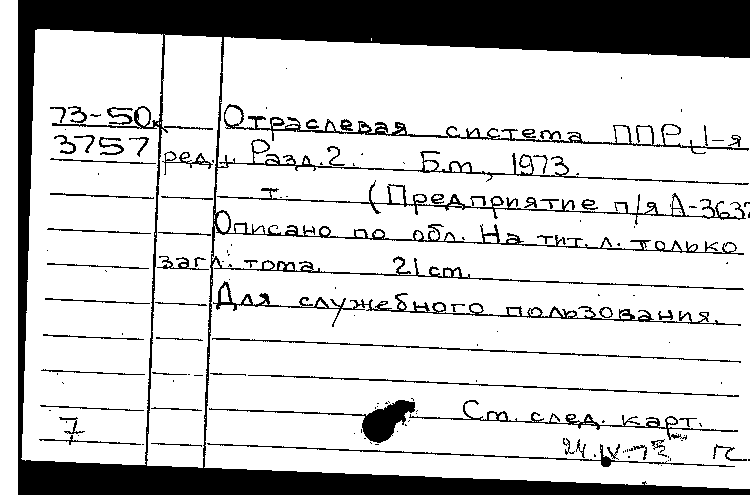 73-50к Отраслевая система ППР, 1-я
3757 ред., Разд. 2. Б.м., 1973.
т. (Предприятие п/я А-3632
Описано по обл. На тит. л. только
загл. тома. 21 см.
Для служебного пользования.
См. след. карт.
7
24.IV-73 гс